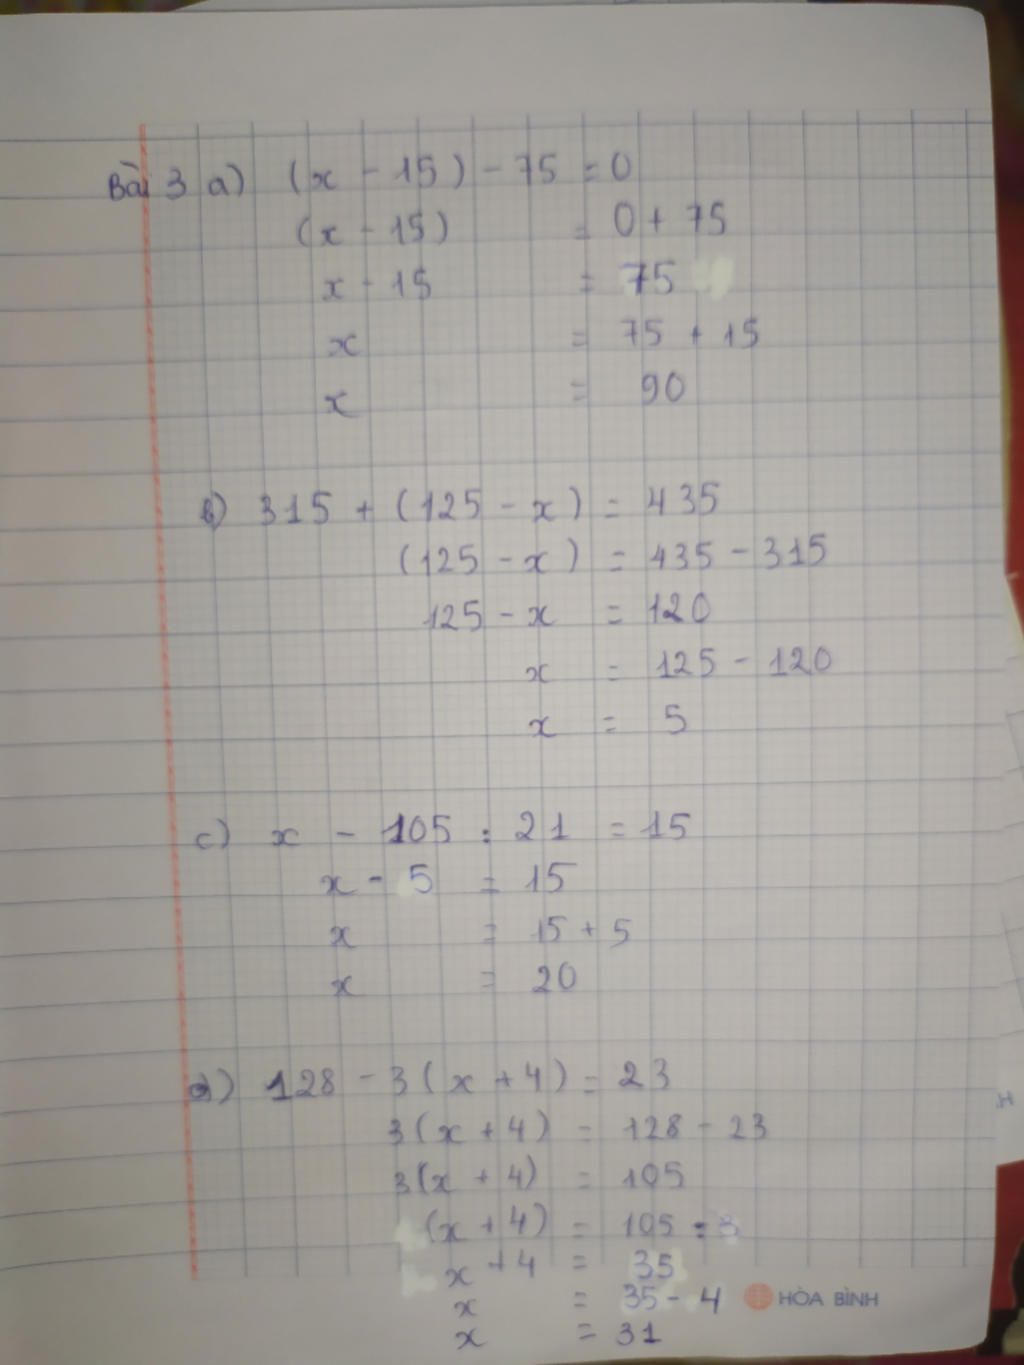 Bài 3 a) (x - 15) - 75 = 0
(x - 15) = 0 + 75
x - 15 = 75
x = 75 + 15
x = 90
b) 315 + (125 - x) = 435
(125 - x) = 435 - 315
125 - x = 120
x = 125 - 120
x = 5
c) x - 105 : 21 = 15
x - 5 = 15
x = 15 + 5
x = 20
d) 128 - 3(x + 4) = 23
3(x + 4) = 128 - 23
3(x + 4) = 105
(x + 4) = 105 : 3
x + 4 = 35
x = 35 - 4
x = 31
HÒA BÌNH
H